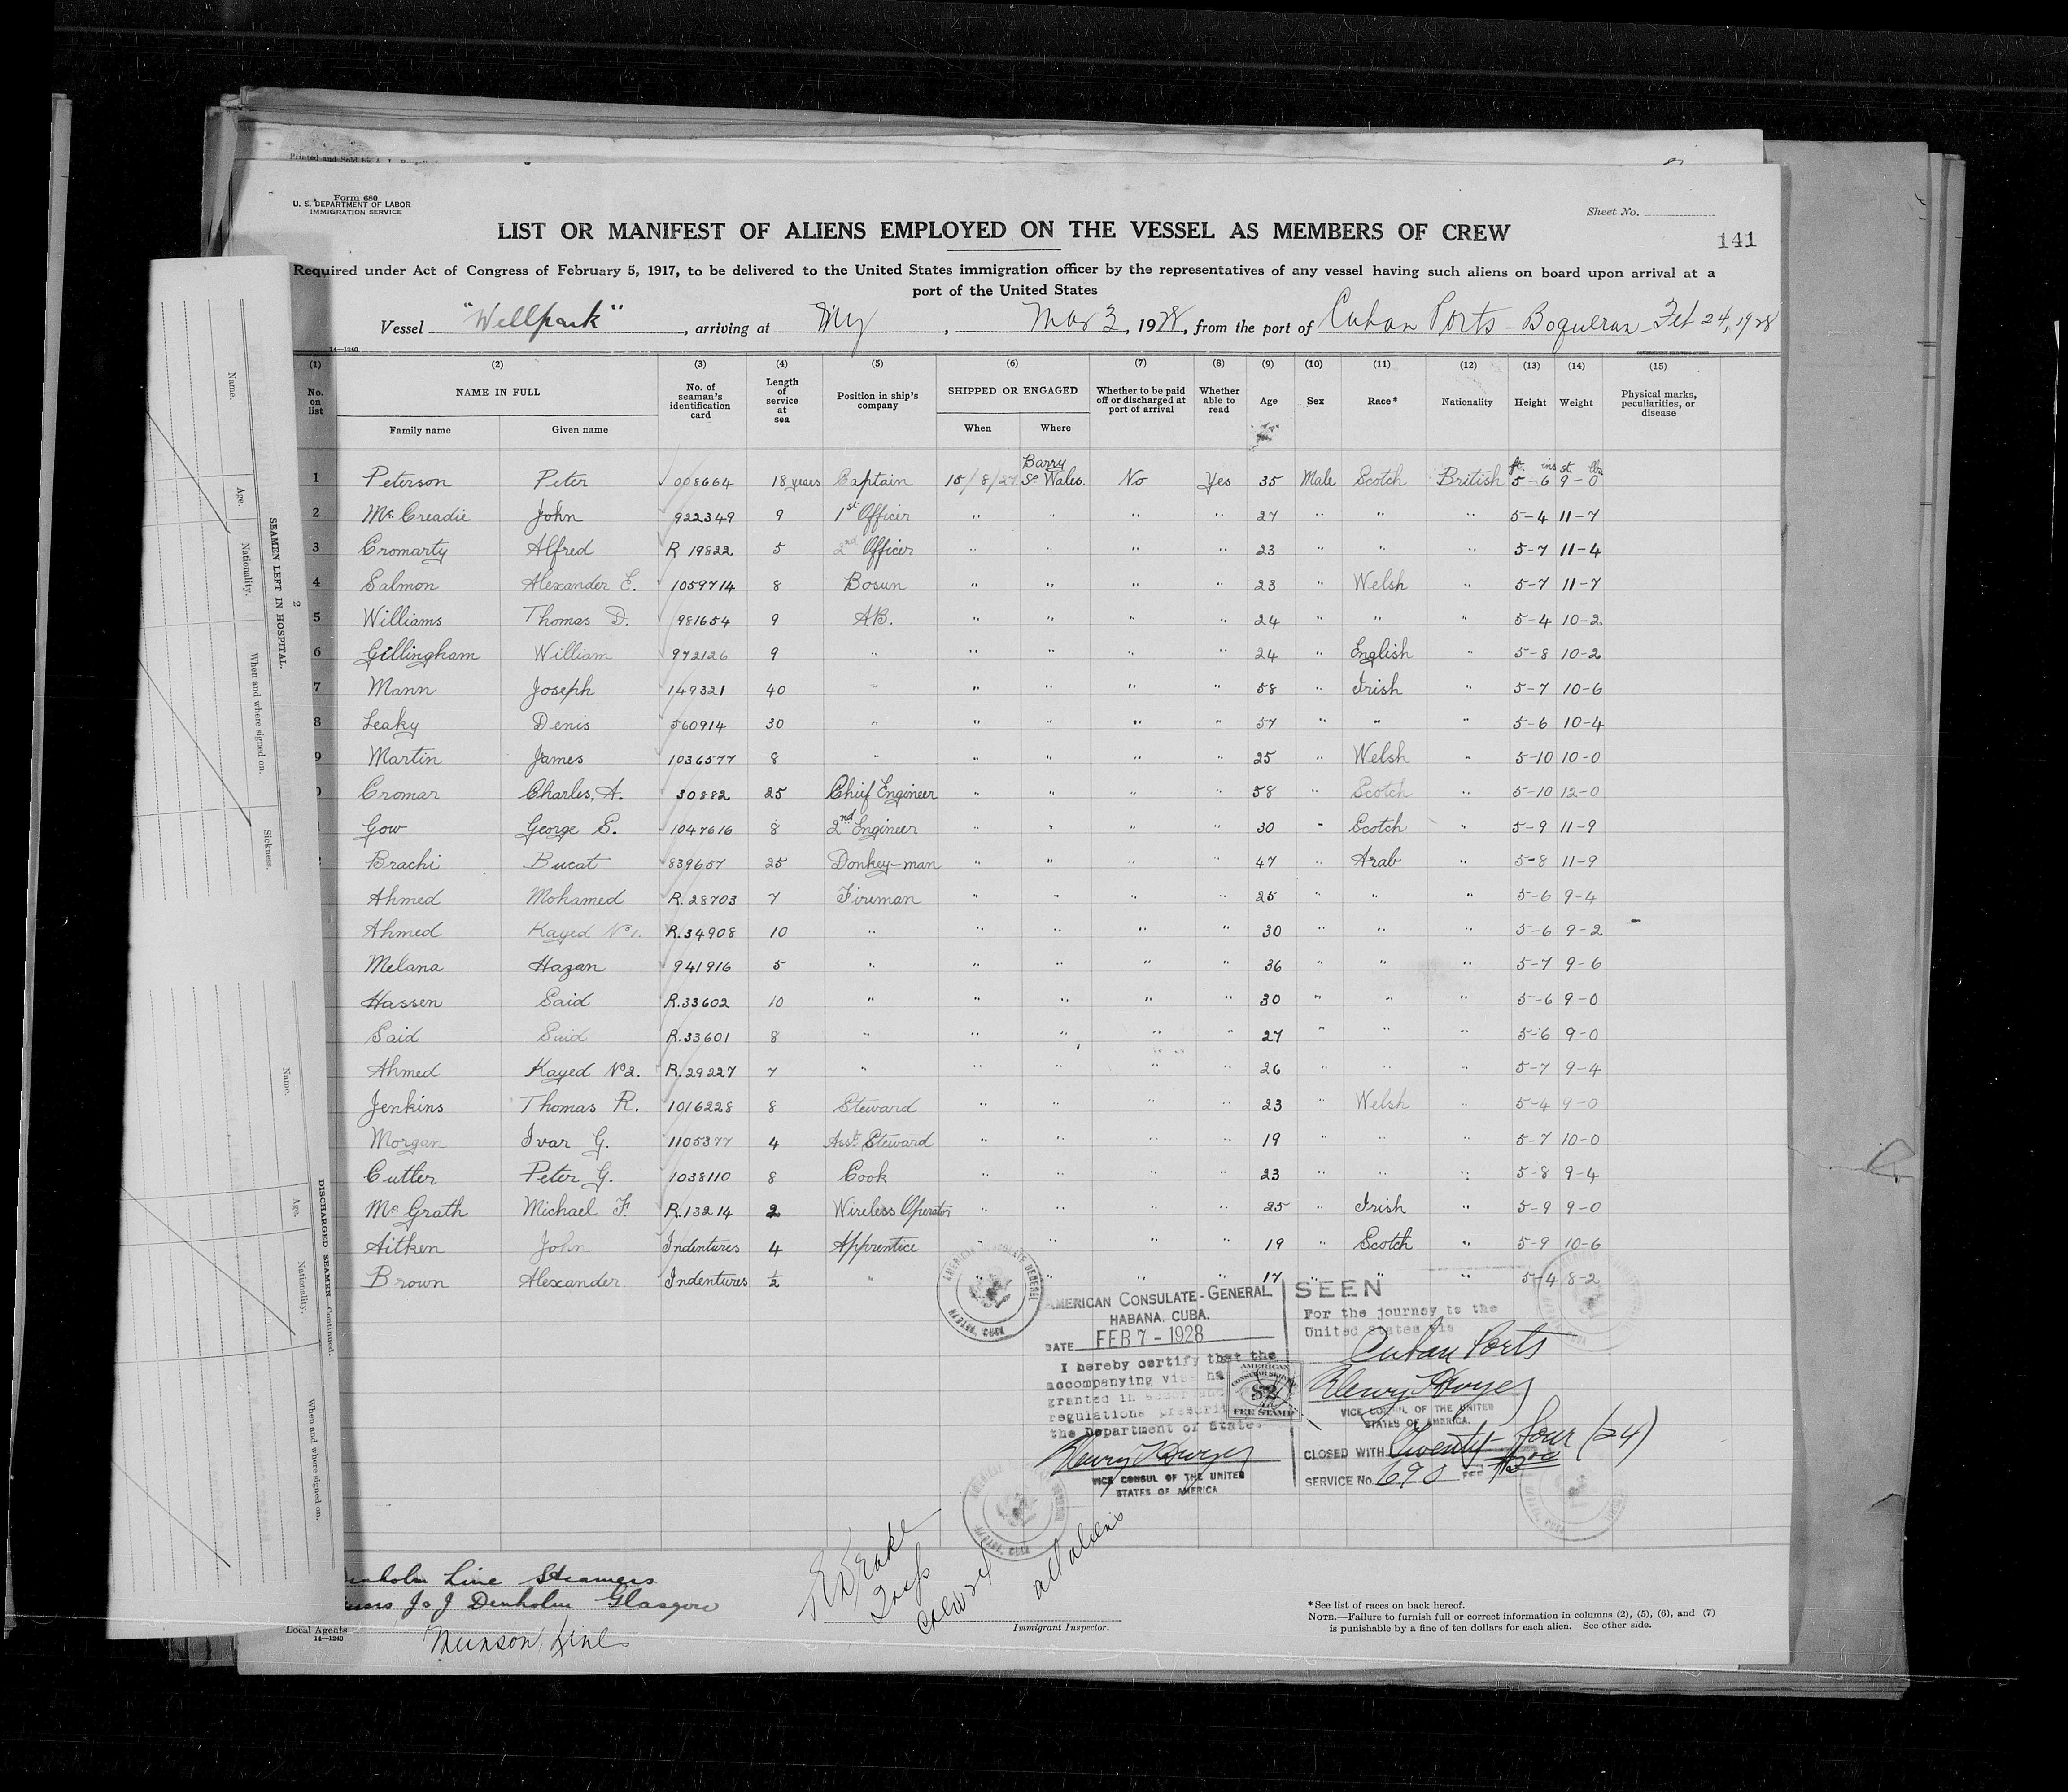 Printed and Sold by A. L.
Form 680
U. S. DEPARTMENT OF LABOR
IMMIGRATION SERVICE
Sheet No.
LIST OR MANIFEST OF ALIENS EMPLOYED ON THE VESSEL AS MEMBERS OF CREW
141
Required under Act of Congress of February 5, 1917, to be delivered to the United States immigration officer by the representatives of any vessel having such aliens on board upon arrival at a
port of the United States
Vessel "Wellpark", arriving at NY, Mar 3, 1928, from the port of Cuban Ports - Boqueron - Feb 24, 1928
14-1240
(1) (2) (3) (4) (5) (6) (7) (8) (9) (10) (11) (12) (13) (14) (15)
No. on list NAME IN FULL No. of seaman's identification card Length of service at sea Position in ship's company SHIPPED OR ENGAGED Whether to be paid off or discharged at port of arrival Whether able to read Age Sex Race* Nationality Height Weight Physical marks, peculiarities, or disease
Family name Given name When Where
ft. ins st. lbs
1 Peterson Peter 008664 18 years Captain 15/8/27 Barry So Wales. No Yes 35 Male Scotch British 5-6 9-0
2 Mc Creadie John 922349 9 1st Officer " " " " 27 " " " 5-4 11-7
3 Cromarty Alfred R 19822 5 2nd Officer " " " " 23 " " " 5-7 11-4
4 Salmon Alexander E. 1059714 8 Bosun " " " " 23 " Welsh " 5-7 11-7
5 Williams Thomas D. 981654 9 A.B. " " " " 24 " " " 5-4 10-2
6 Gillingham William 972126 9 " " " " " 24 " English " 5-8 10-2
7 Mann Joseph 149321 40 " " " " " 58 " Irish " 5-7 10-6
8 Leaky Denis 560914 30 " " " " " 57 " " " 5-6 10-4
9 Martin James 1036577 8 " " " " " 25 " Welsh " 5-10 10-0
Cromar Charles, A. 30882 25 Chief Engineer " " " " 58 " Scotch " 5-10 12-0
Gow George S. 1047616 8 2nd Engineer " " " " 30 " Scotch " 5-9 11-9
Brachi Bucat 839657 25 Donkey-man " " " " 47 " Arab " 5-8 11-9
Ahmed Mohamed R. 28703 7 Fireman " " " " 25 " " " 5-6 9-4
Ahmed Kayed No 1. R.34908 10 " " " " " 30 " " " 5-6 9-2
Melana Hazan 941916 5 " " " " " 36 " " " 5-7 9-6
Hassen Said R.33602 10 " " " " " 30 " " " 5-6 9-0
Said Said R.33601 8 " " " " " 27 " " " 5-6 9-0
Ahmed Kayed No 2. R.29227 7 " " " " " 26 " " " 5-7 9-4
Jenkins Thomas R. 1016228 8 Steward " " " " 23 " Welsh " 5-4 9-0
Morgan Ivar G. 1105377 4 Asst. Steward " " " " 19 " " " 5-7 10-0
Cutler Peter G. 1038110 8 Cook " " " " 23 " " " 5-8 9-4
Mc Grath Michael F. R.13214 2 Wireless Operator " " " " 25 " Irish " 5-9 9-0
Aitken John Indentures 4 Apprentice " " " " 19 " Scotch " 5-9 10-6
Brown Alexander Indentures 1/2 " " " " " 17 " " " 5-4 8-2
AMERICAN CONSULATE GENERAL
HABANA, CUBA
AMERICAN CONSULATE-GENERAL.
HABANA. CUBA.
DATE FEB 7 - 1928
I hereby certify that the
accompanying visa ha
granted in
regulations prescri
the Department of State.
Henry T Dwyer
VICE CONSUL OF THE UNITED
STATES OF AMERICA
AMERICAN
CONSULAR SERVICE
$2
FEE STAMP
SEEN
For the journey to the
United States via
Cuban Ports
Henry T Dwyer
VICE CONSUL OF THE UNITED
STATES OF AMERICA.
CLOSED WITH Twenty-four (24)
SERVICE No. 690 FEE $2.00
HABANA, CUBA
Denholm Line Steamers
J & J Denholm Glasgow
Local Agents Munson Line
14-1240
all aliens
Immigrant Inspector.
*See list of races on back hereof.
NOTE.—Failure to furnish full or correct information in columns (2), (5), (6), and (7)
is punishable by a fine of ten dollars for each alien. See other side.
2
SEAMEN LEFT IN HOSPITAL.
Name.
Age.
Nationality.
When and where signed on.
Sickness.
DISCHARGED SEAMEN—Continued.
Name.
Age.
Nationality.
When and where signed on.